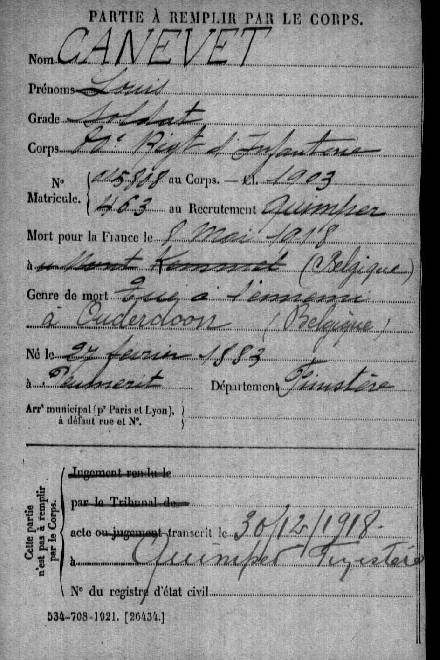 PARTIE À REMPLIR PAR LE CORPS.
Nom CANEVET
Prénoms Louis
Grade Soldat
Corps Rigt d'Infanterie
N° Matricule. au Corps. — Cl. 1903
463 au Recrutement Quimper
Mort pour la France le 8 Mai 1918
à Mont Kemmel (Belgique)
Genre de mort Tué à l'ennemi
à Ouderdoon (Belgique)
Né le 27 février 1883
à Peumerit Département Finistère
Arr' municipal (p' Paris et Lyon),
à défaut rue et N°.
Cette partie
n'est pas à remplir
par le Corps.
Jugement rendu le
par le Tribunal de
acte ou jugement transcrit le 30/12/1918.
à Quimper Finistère
N° du registre d'état civil
534-708-1921. [26434.]